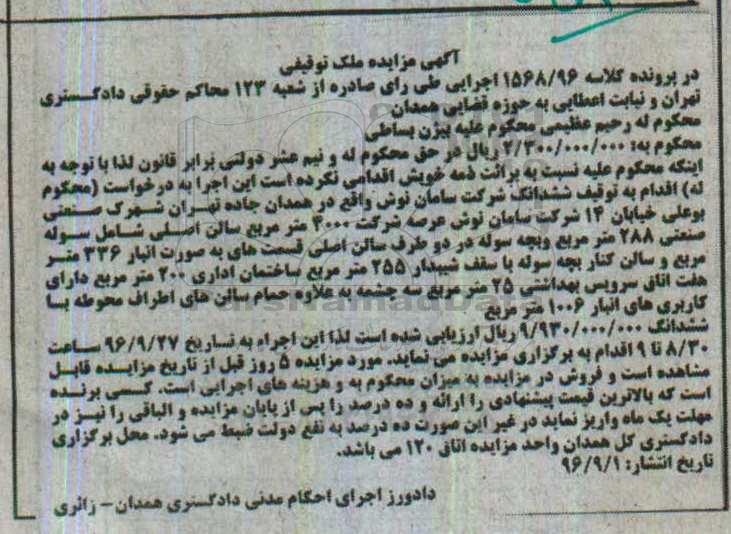 آگهی مزایده ملک توقیفی
در پرونده کلاسه ۱۵۶۸/۹۶ اجرایی طی رای صادره از شعبه ۱۲۳ محاکم حقوقی دادگستری
تهران و نیابت اعطایی به حوزه قضایی همدان
محکوم له رحیم عظیمی محکوم علیه بیژن بساطی
محکوم به: ۲/۳۰۰/۰۰۰/۰۰۰ ریال در حق محکوم له و نیم عشر دولتی برابر قانون لذا با توجه به
اینکه محکوم علیه نسبت به برائت ذمه خویش اقدامی نکرده است این اجرا به درخواست (محکوم
له) اقدام به توقیف ششدانگ شرکت سامان نوش واقع در همدان جاده تهران شهرک صنعتی
بوعلی خیابان ۱۴ شرکت سامان نوش عرصه شرکت ۳۰۰۰ متر مربع سالن اصلی شامل سوله
صنعتی ۲۸۸ متر مربع وبچه سوله در دو طرف سالن اصلی قسمت های به صورت انبار ۳۳۶ متر
مربع و سالن کنار بچه سوله با سقف شیبدار ۲۵۵ متر مربع ساختمان اداری ۲۰۰ متر مربع دارای
هفت اتاق سرویس بهداشتی ۲۵ متر مربع سه چشمه به علاوه حمام سالن های اطراف محوطه با
کاربری های انبار ۱۰۰۶ متر مربع
ششدانگ ۹/۹۳۰/۰۰۰/۰۰۰ ریال ارزیابی شده است لذا این اجراء به تساریخ ۹۶/۹/۲۷ ساعت
۸/۳۰ تا ۹ اقدام به برگزاری مزایده می نماید. مورد مزایده ۵ روز قبل از تاریخ مزایده قابل
مشاهده است و فروش در مزایده به میزان محکوم به و هزینه های اجرایی است. کسی برنده
است که بالاترین قیمت پیشنهادی را ارائه و ده درصد را پس از پایان مزایده و الباقی را نیز در
مهلت یک ماه واریز نماید در غیر این صورت ده درصد به نفع دولت ضبط می شود. محل برگزاری
دادگستری کل همدان واحد مزایده اتاق ۱۲۰ می باشد.
تاریخ انتشار: ۹۶/۹/۱
دادورز اجرای احکام مدنی دادگستری همدان - زائری
ParsNamadData